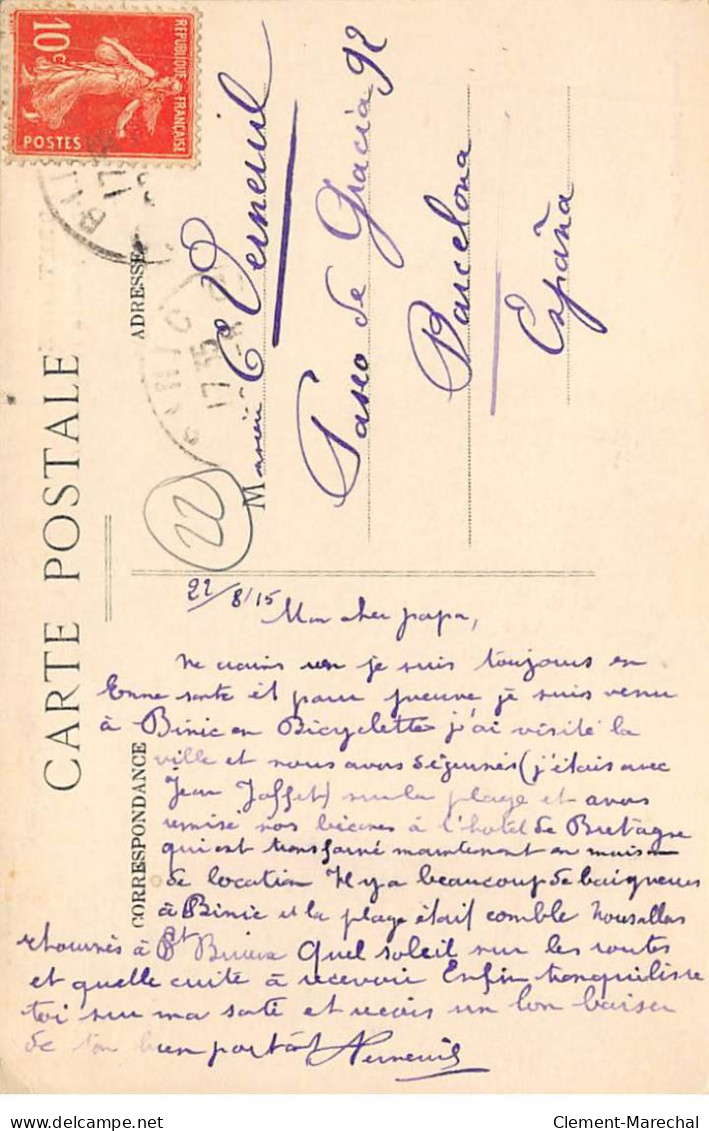 10c
RÉPUBLIQUE FRANÇAISE
POSTES
CARTE POSTALE
ADRESSE
CORRESPONDANCE
BINIC
17 35
Monsieur C Verneuil
Paseo de Gracia 92
Barcelona
España
22
22/8/15
Mon cher papa,
ne crains rien je suis toujours en
bonne santé et pour preuve je suis venu
à Binic en Bicyclette j'ai visité la
ville et nous avons déjeunés (j'étais avec
Jean Joffet) sur la plage et avons
remisé nos bécanes à l'hotel de Bretagne
qui est transformé maintenant en maison
de location Il y a beaucoup de baigneurs
à Binic et la plage était comble Nous allons
retournés à St Brieuc Quel soleil sur les routes
et quelle cuite à recevoir Enfin tranquilise
toi sur ma santé et reçois un bon baiser
de ton bien portant Verneuil
Clement-Marechal